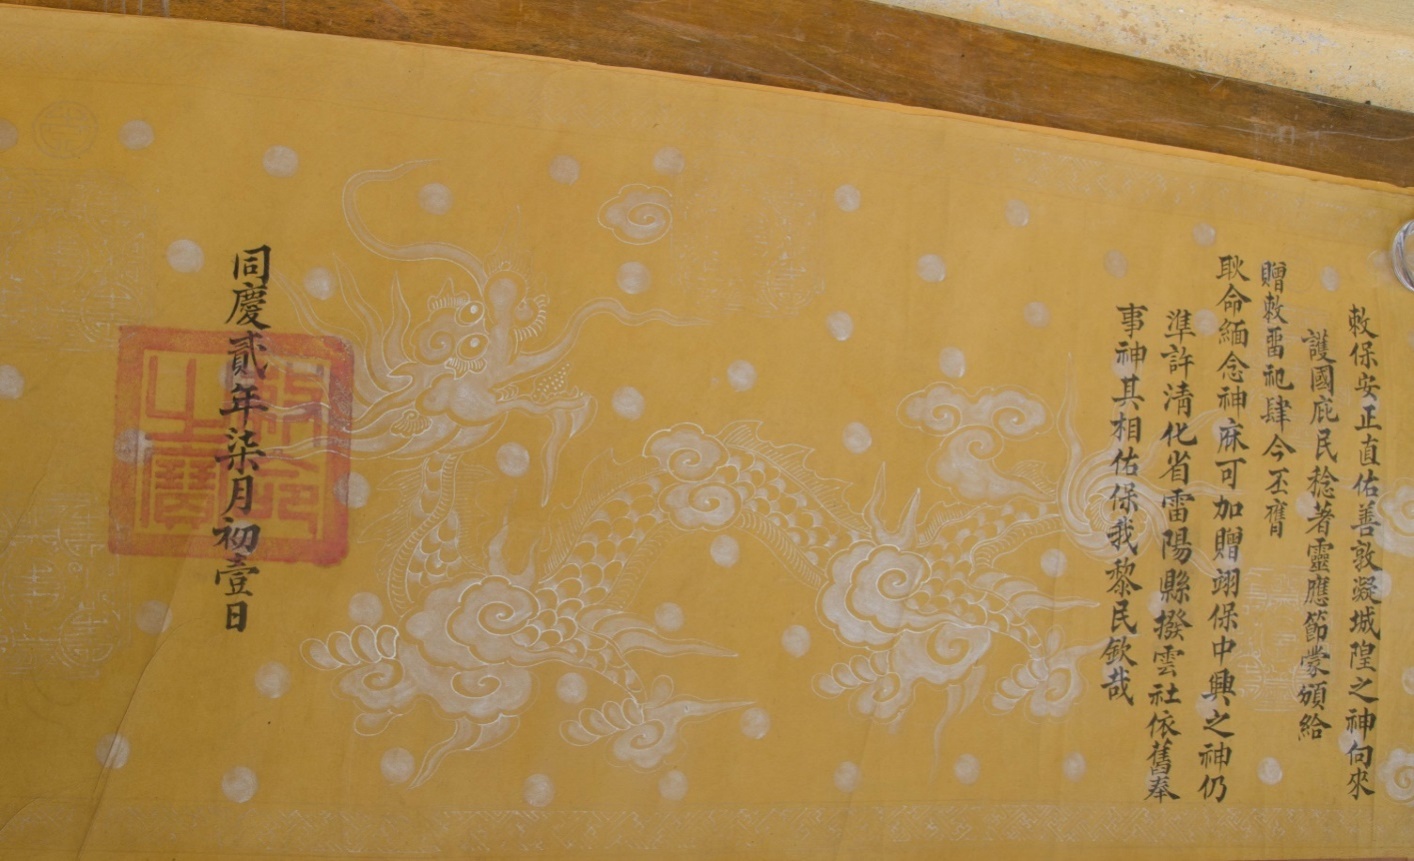 敕保安正直佑善敦凝城隍之神向來
護國庇民稔著靈應節蒙頒給
贈敕畱祀肆今丕膺
耿命緬念神庥可加贈翊保中興之神仍
準許清化省雷陽縣撥雲社依舊奉
事神其相佑保我黎民欽哉
同慶貳年柒月初壹日
敕命之寶